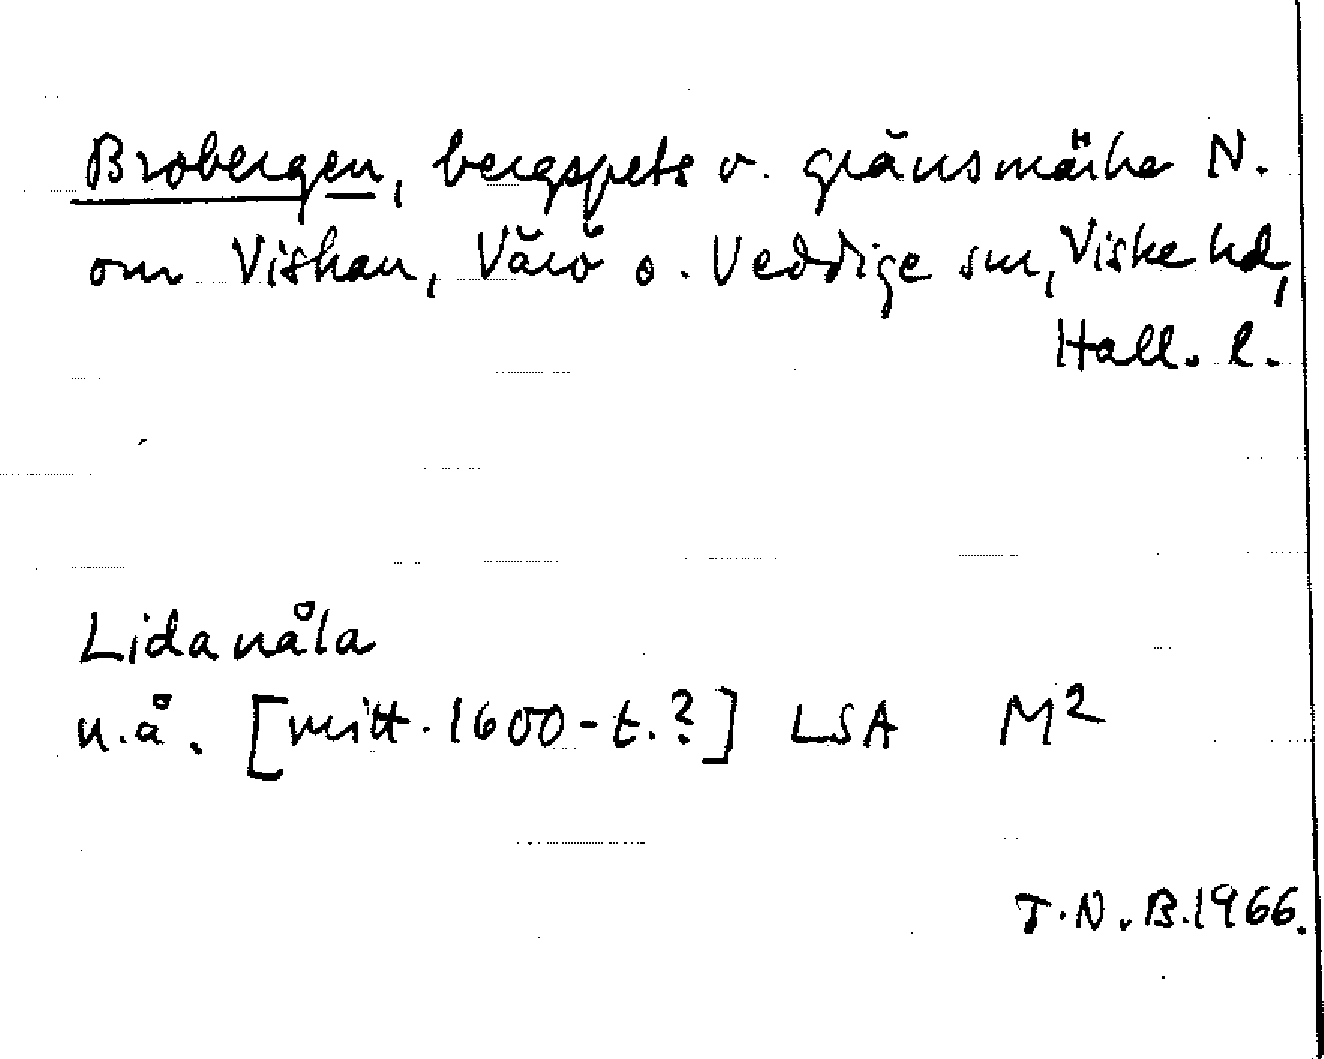 Brobergen, bergspets o. gränsmärke N.
om Viskan, Värö o. Veddige snr, Viske hd,
Hall. l.
Lidanåla
n.å. [mitt. 1600-t.?] LSA M²
T.N.B. 1966.